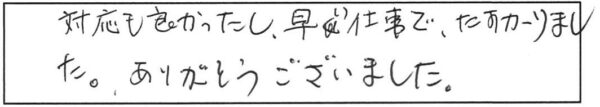 対応も良かったし、早い仕事で、たすカーりまし
た。ありがとうございました。